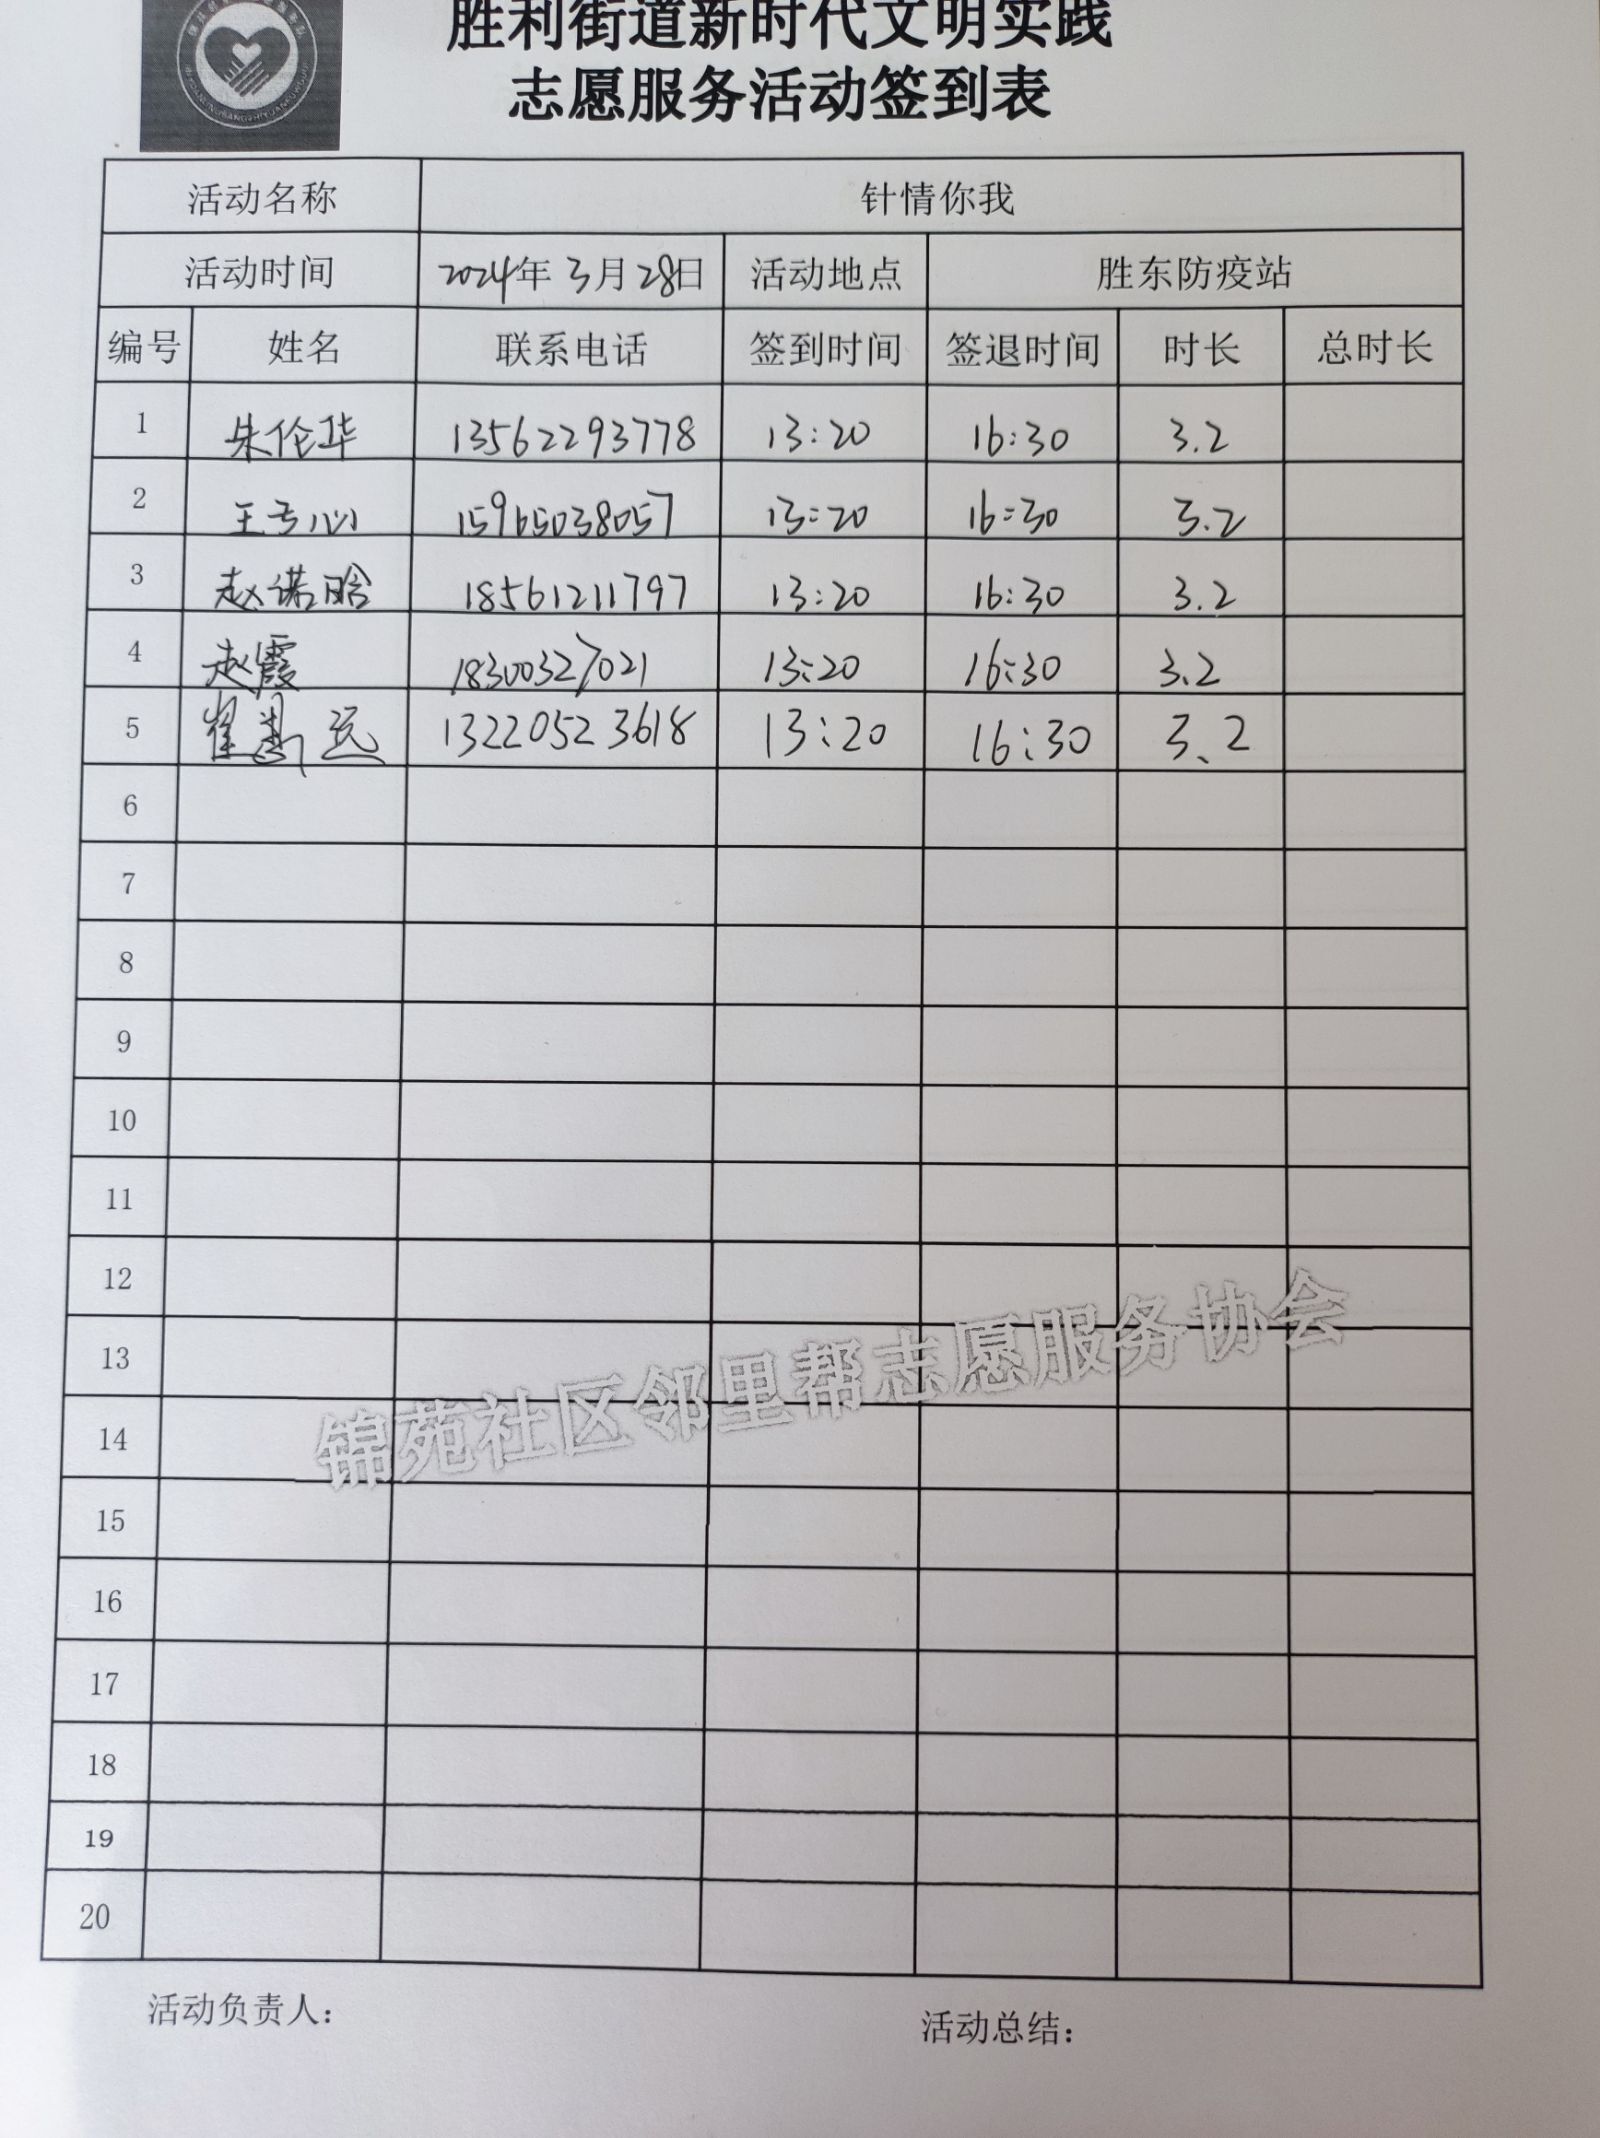 胜利街道新时代文明实践
志愿服务活动签到表
活动名称 针情你我
活动时间 2024年3月28日 活动地点 胜东防疫站
编号 姓名 联系电话 签到时间 签退时间 时长 总时长
1 朱伦华 13562293778 13:20 16:30 3.2
2 王专心 15965038057 13:20 16:30 3.2
3 赵诺晗 18561211797 13:20 16:30 3.2
4 赵霞 18300327021 13:20 16:30 3.2
5 崔 远 13220523618 13:20 16:30 3.2
6
7
8
9
10
11
12
13
14
15
16
17
18
19
20
锦苑社区邻里帮志愿服务协会
活动负责人: 活动总结: